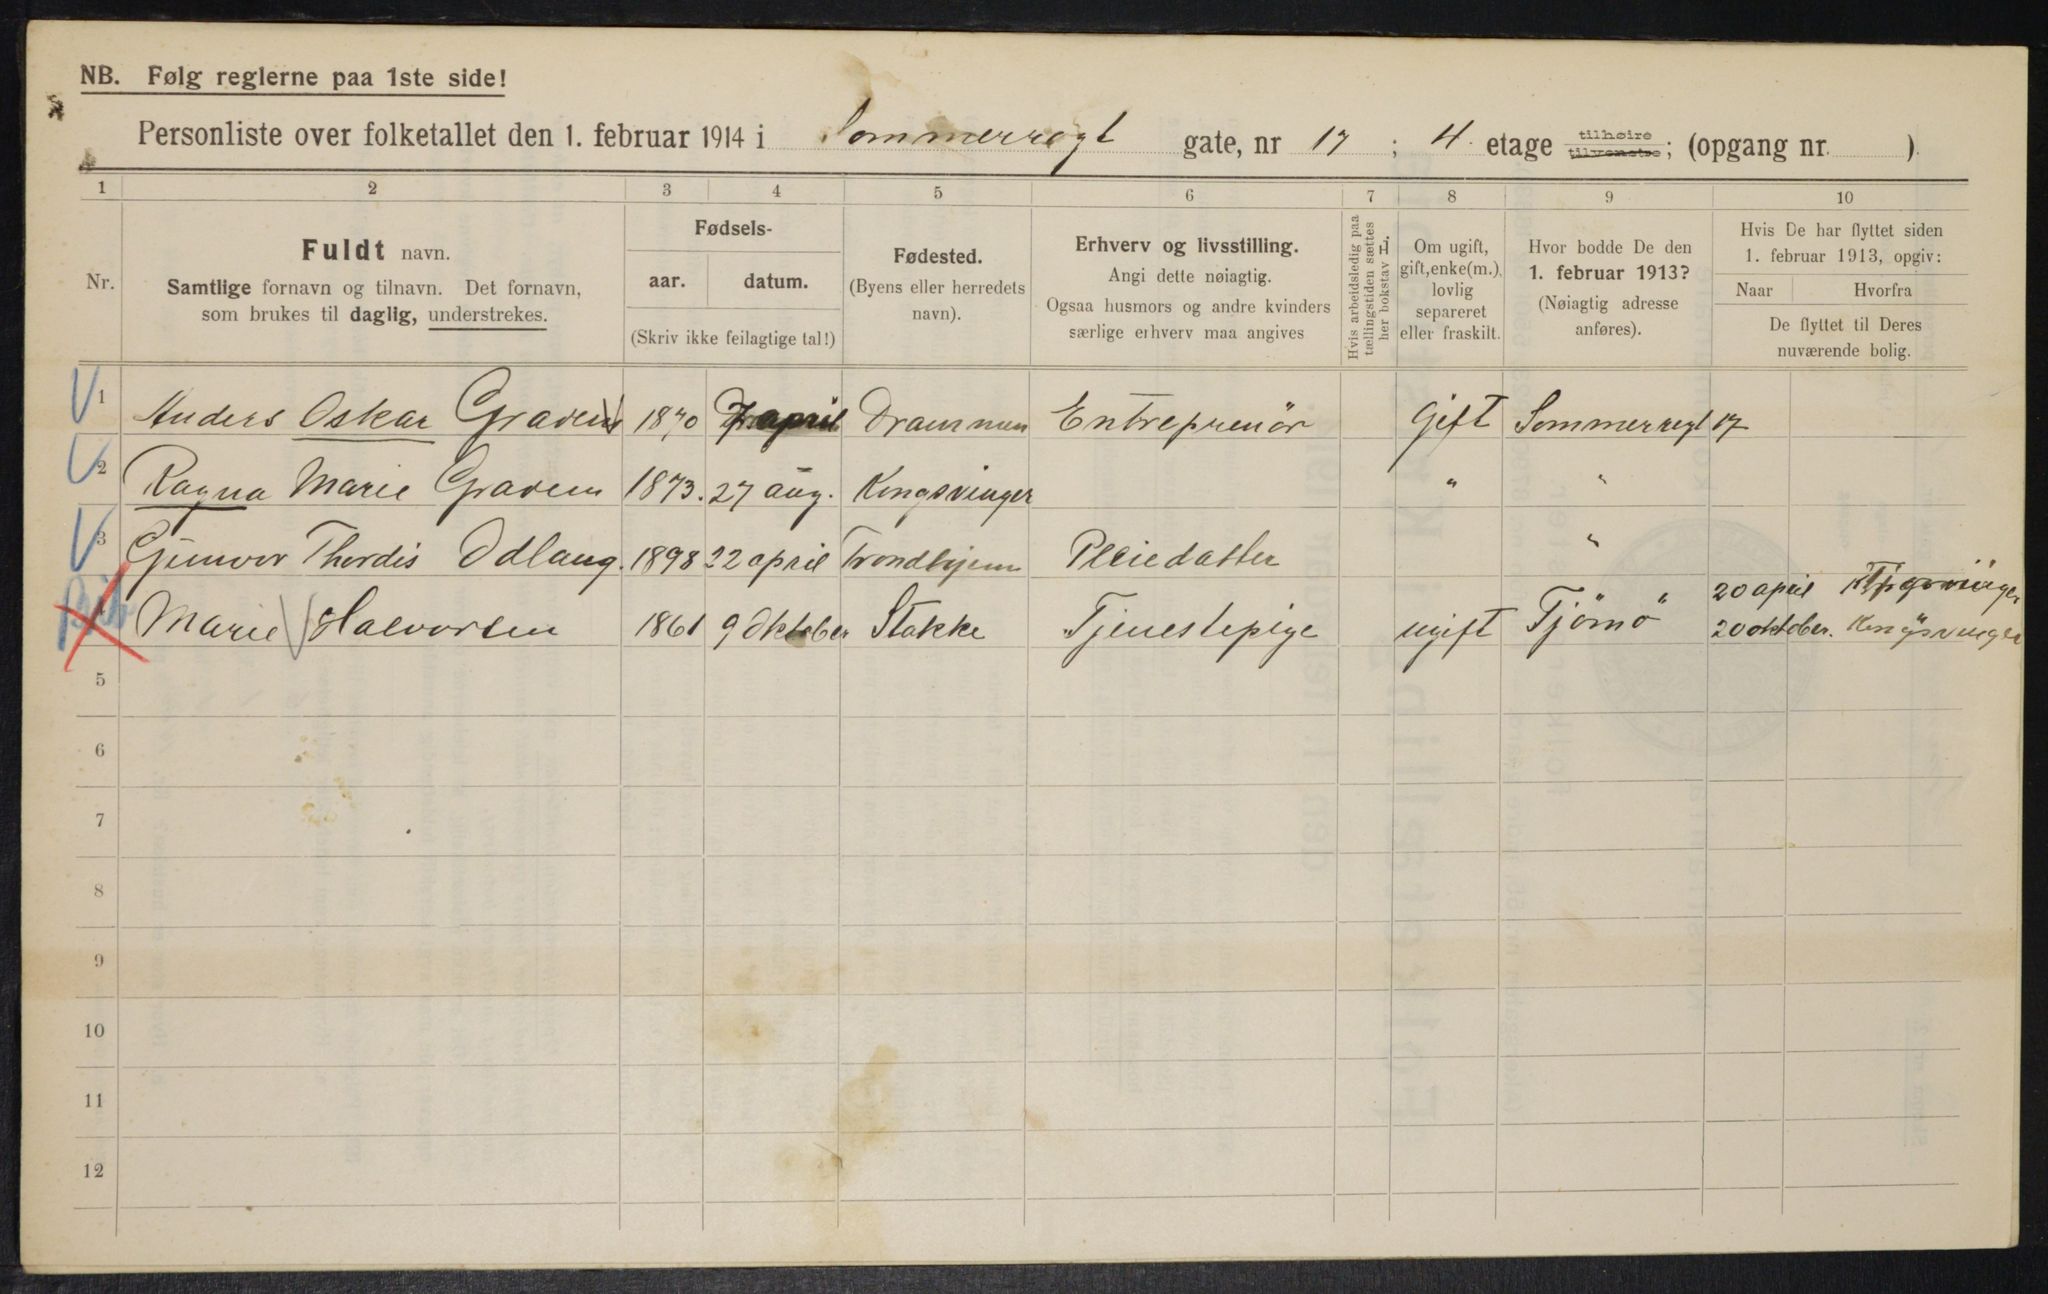 NB. Følg reglerne paa 1ste side!
Personliste over folketallet den 1. februar 1914 i Sommerrogt gate, nr 17 ; 4. etage tilhøire tilvenstre; (opgang nr. )
1 2 3 4 5 6 7 8 9 10
Nr.
Fuldt navn.
Samtlige fornavn og tilnavn. Det fornavn,
som brukes til daglig, understrekes.
Fødsels-
aar. datum.
(Skriv ikke feilagtige tal!)
Fødested.
(Byens eller herredets
navn).
Erhverv og livsstilling.
Angi dette nøiagtig.
Ogsaa husmors og andre kvinders
særlige erhverv maa angives
Hvis arbeidsledig paa
tællingstiden sættes
her bokstav L.
Om ugift,
gift, enke(m.),
lovlig
separeret
eller fraskilt.
Hvor bodde De den
1. februar 1913?
(Nøiagtig adresse
anføres).
Hvis De har flyttet siden
1. februar 1913, opgiv:
Naar Hvorfra
De flyttet til Deres
nuværende bolig.
1 Anders Oskar Gravem 1870 7 april Drammen Entreprenör Gift Sommerrogt 17
2 Ragna Marie Gravem 1873. 27 aug. Kongsvinger " "
3 Gunvor Thordis Odlaug. 1898 22 april Trondhjem Pleiedatter "
20 april
4 Marie Halvorsen 1861 9 Oktober Stokke Tjenestepige ugift Tjömö 20 oktober. Kongsvinger
5
6
7
8
9
10
11
12